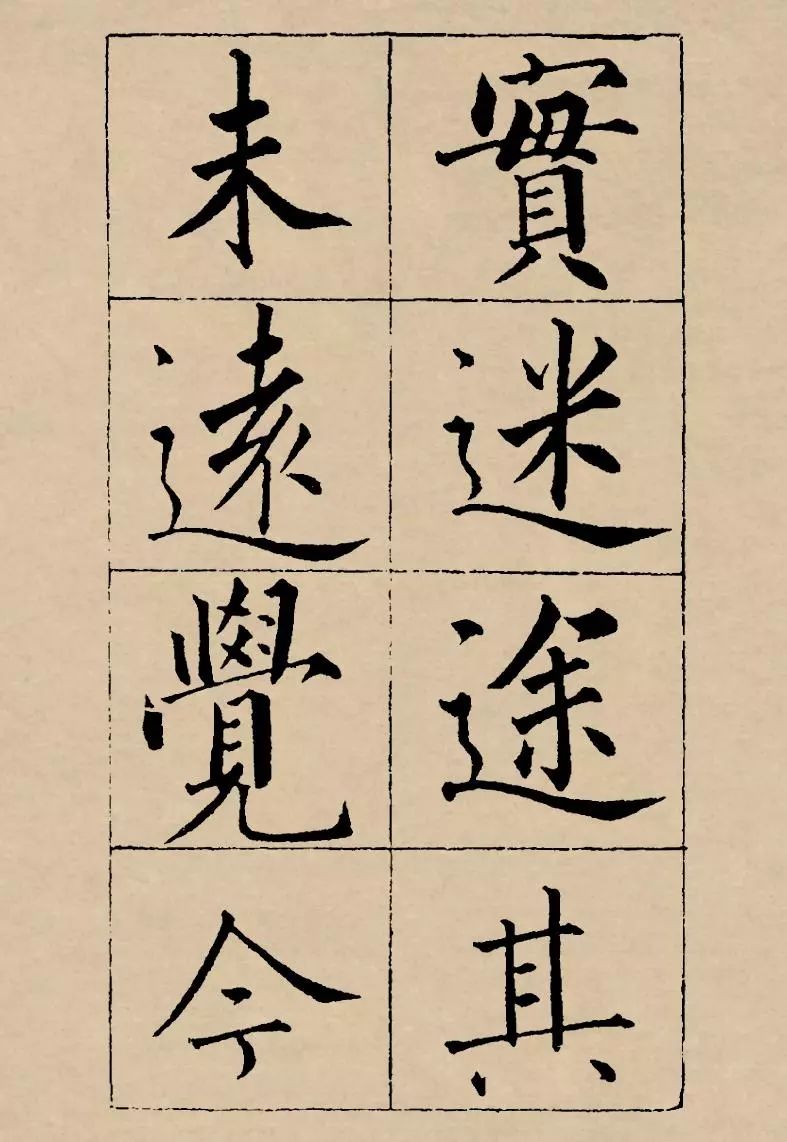 實迷途其
未遠覺今